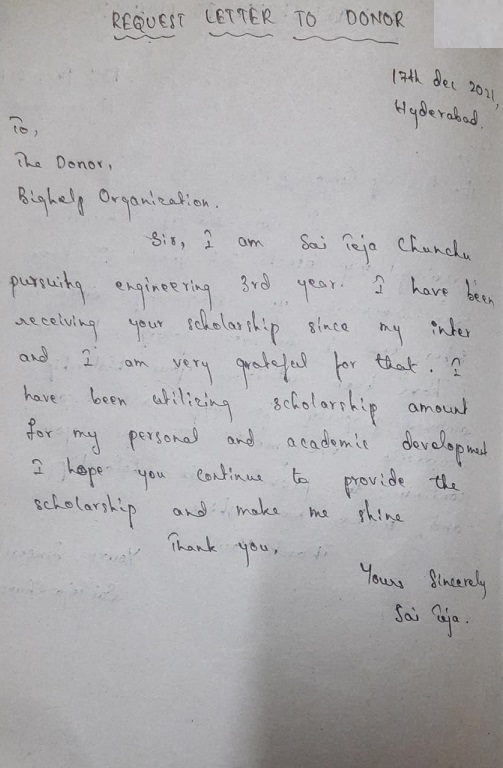 REQUEST LETTER TO DONOR
17th dec 2021,
Hyderabad.
To,
The Donor,
Bighelp Organization.
Sir, I am Sai Teja Chunchu
pursuing engineering 3rd year. I have been
receiving your scholarship since my inter
and I am very grateful for that. I
have been utilizing scholarship amount
for my personal and academic development
I hope you continue to provide the
scholarship and make me shine
Thank you.
Yours Sincerely
Sai Teja.